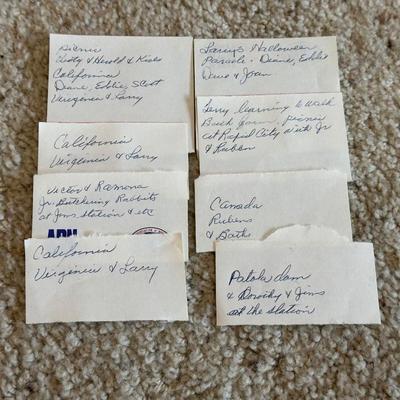 Picnic
Betty & Herold & Kids
California
Diane, Eddie, Scot
Vireginia & Larry
California
Virginia & Larry
Victor & Ramona
Jr. Butchering Rabbits
at Jims station & etc
ADN
California
Virginia & Larry
Larrys Halloween
Parade - Diane, Eddie
Dave & Joan
Terry learning to Walk
Back farm. Picnic
at Rapid City with Jr
& Ruben
Canada
Rubens
& Baths
Patoka dam
& Dorothy & Jims
at the station